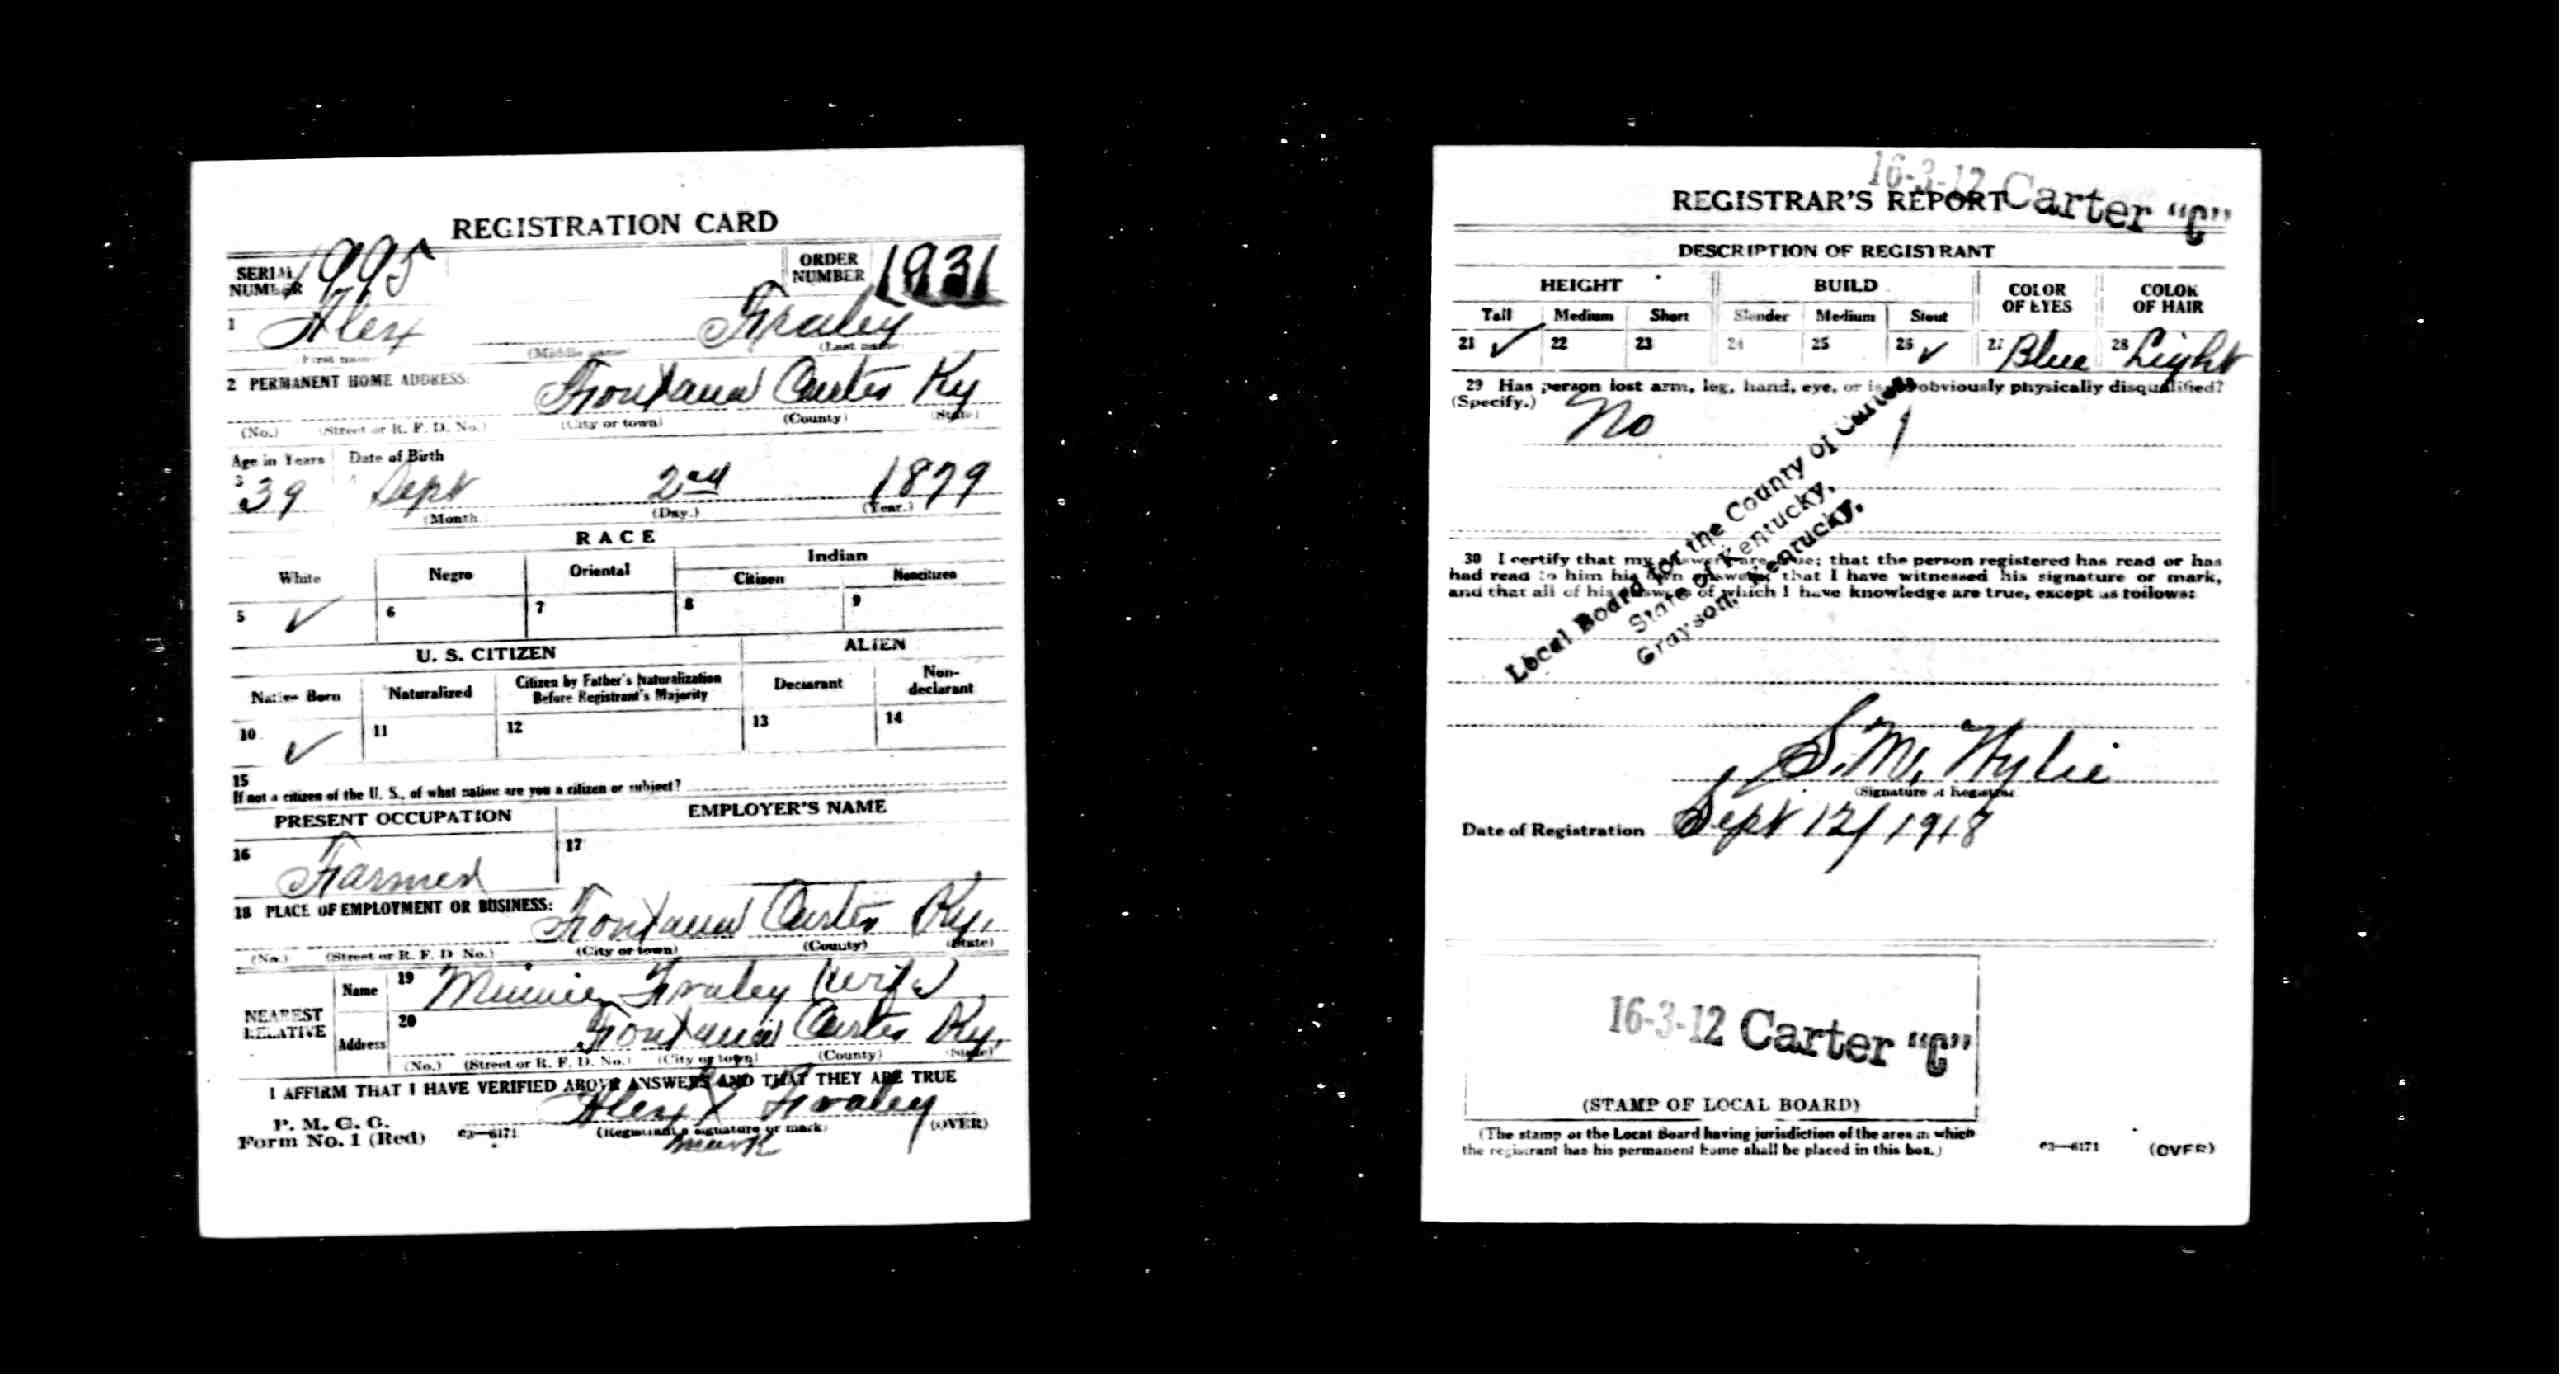 REGISTRATION CARD
SERIAL NUMBER 1995
ORDER NUMBER 1931
1 Alex Fraley
(First name) (Middle name) (Last name)
2 PERMANENT HOME ADDRESS:
Fontana Carter Ky
(No.) (Street or R. F. D. No.) (City or town) (County) (State)
Age in Years Date of Birth
3 39 Sept 2nd 1879
(Month.) (Day.) (Year.)
RACE
White Negro Oriental Indian
Citizen Noncitizen
5 ✓ 6 7 8 9
U. S. CITIZEN ALIEN
Native Born Naturalized Citizen by Father's Naturalization Before Registrant's Majority Declarant Non-declarant
10 ✓ 11 12 13 14
15
If not a citizen of the U. S., of what nation are you a citizen or subject?
PRESENT OCCUPATION EMPLOYER'S NAME
16 Farmer 17
18 PLACE OF EMPLOYMENT OR BUSINESS:
Fontana Carter Ky.
(No.) (Street or R. F. D. No.) (City or town) (County) (State)
NEAREST RELATIVE
Name 19 Minnie Fraley (wife)
Address 20 Fontana Carter Ky.
(No.) (Street or R. F. D. No.) (City or town) (County) (State)
I AFFIRM THAT I HAVE VERIFIED ABOVE ANSWERS AND THAT THEY ARE TRUE
P. M. G. O.
Form No. 1 (Red) 03—6171
Alex X Fraley
(Registrant's signature or mark) (OVER)
mark
16-3-12 Carter "C"
REGISTRAR'S REPORT
DESCRIPTION OF REGISTRANT
HEIGHT BUILD COLOR OF EYES COLOR OF HAIR
Tall Medium Short Slender Medium Stout
21 ✓ 22 23 24 25 26 ✓ 27 Blue 28 Light
29 Has person lost arm, leg, hand, eye, or is he obviously physically disqualified?
(Specify.) No
Local Board for the County of Carter
State of Kentucky,
Grayson, Kentucky.
30 I certify that my answers are true; that the person registered has read or has
had read to him his own answers; that I have witnessed his signature or mark,
and that all of his answers of which I have knowledge are true, except as follows:
S. M. Wylie
(Signature of Registrar)
Date of Registration Sept 12/1918
16-3-12 Carter "C"
(STAMP OF LOCAL BOARD)
(The stamp of the Local Board having jurisdiction of the area in which
the registrant has his permanent home shall be placed in this box.)
03—6171 (OVER)